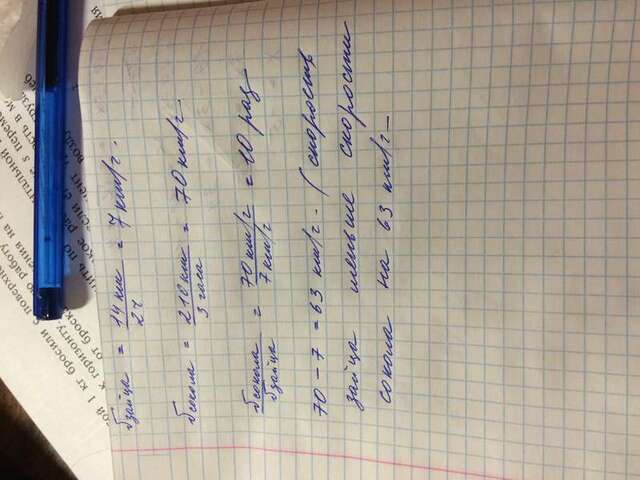 ой 1 кг бросили с поверхно
к горизонту.
от броска
υ зайца = 14 км / 2ч = 7 км/ч.
υ сокола = 210 км / 3 часа = 70 км/ч
υ сокола / υ зайца = 70 км/ч / 7 км/ч = 10 раз
70 - 7 = 63 км/ч. ( скорость
зайца меньше скорости
сокола на 63 км/ч